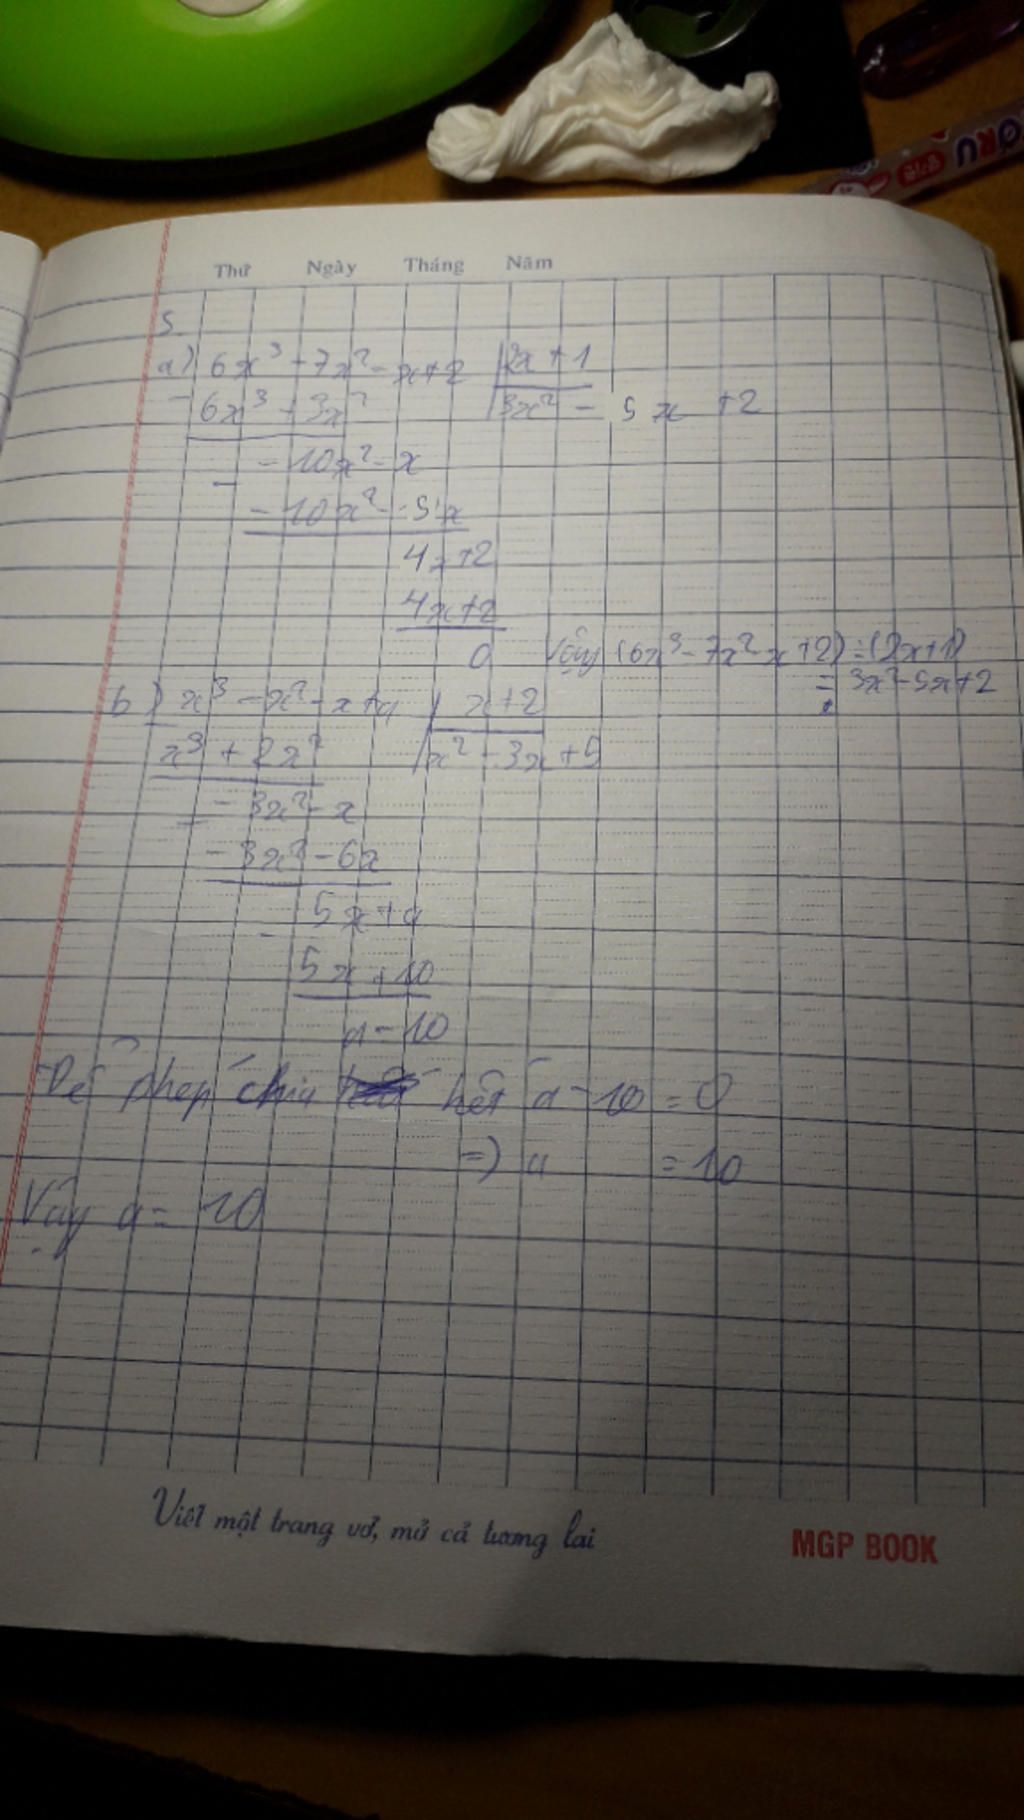 Thứ Ngày Tháng Năm
5
a) 6x³ - 7x² - x + 2 | 2x + 1
6x³ - 3x² | 3x² - 5x + 2
- 10x² - x
- 10x² - 5x
4x + 2
4x + 2
0 Vậy (6x³ - 7x² - x + 2) : (2x + 1)
= 3x² - 5x + 2
b) x³ - x² - x + a | x + 2
x³ + 2x² | x² - 3x + 5
- 3x² - x
- 3x² - 6x
5x + a
5x + 10
a - 10
Để phép chia hết a - 10 = 0
=> a = 10
Vậy a = 10
Viết một trang vở, mở cả tương lai
MGP BOOK